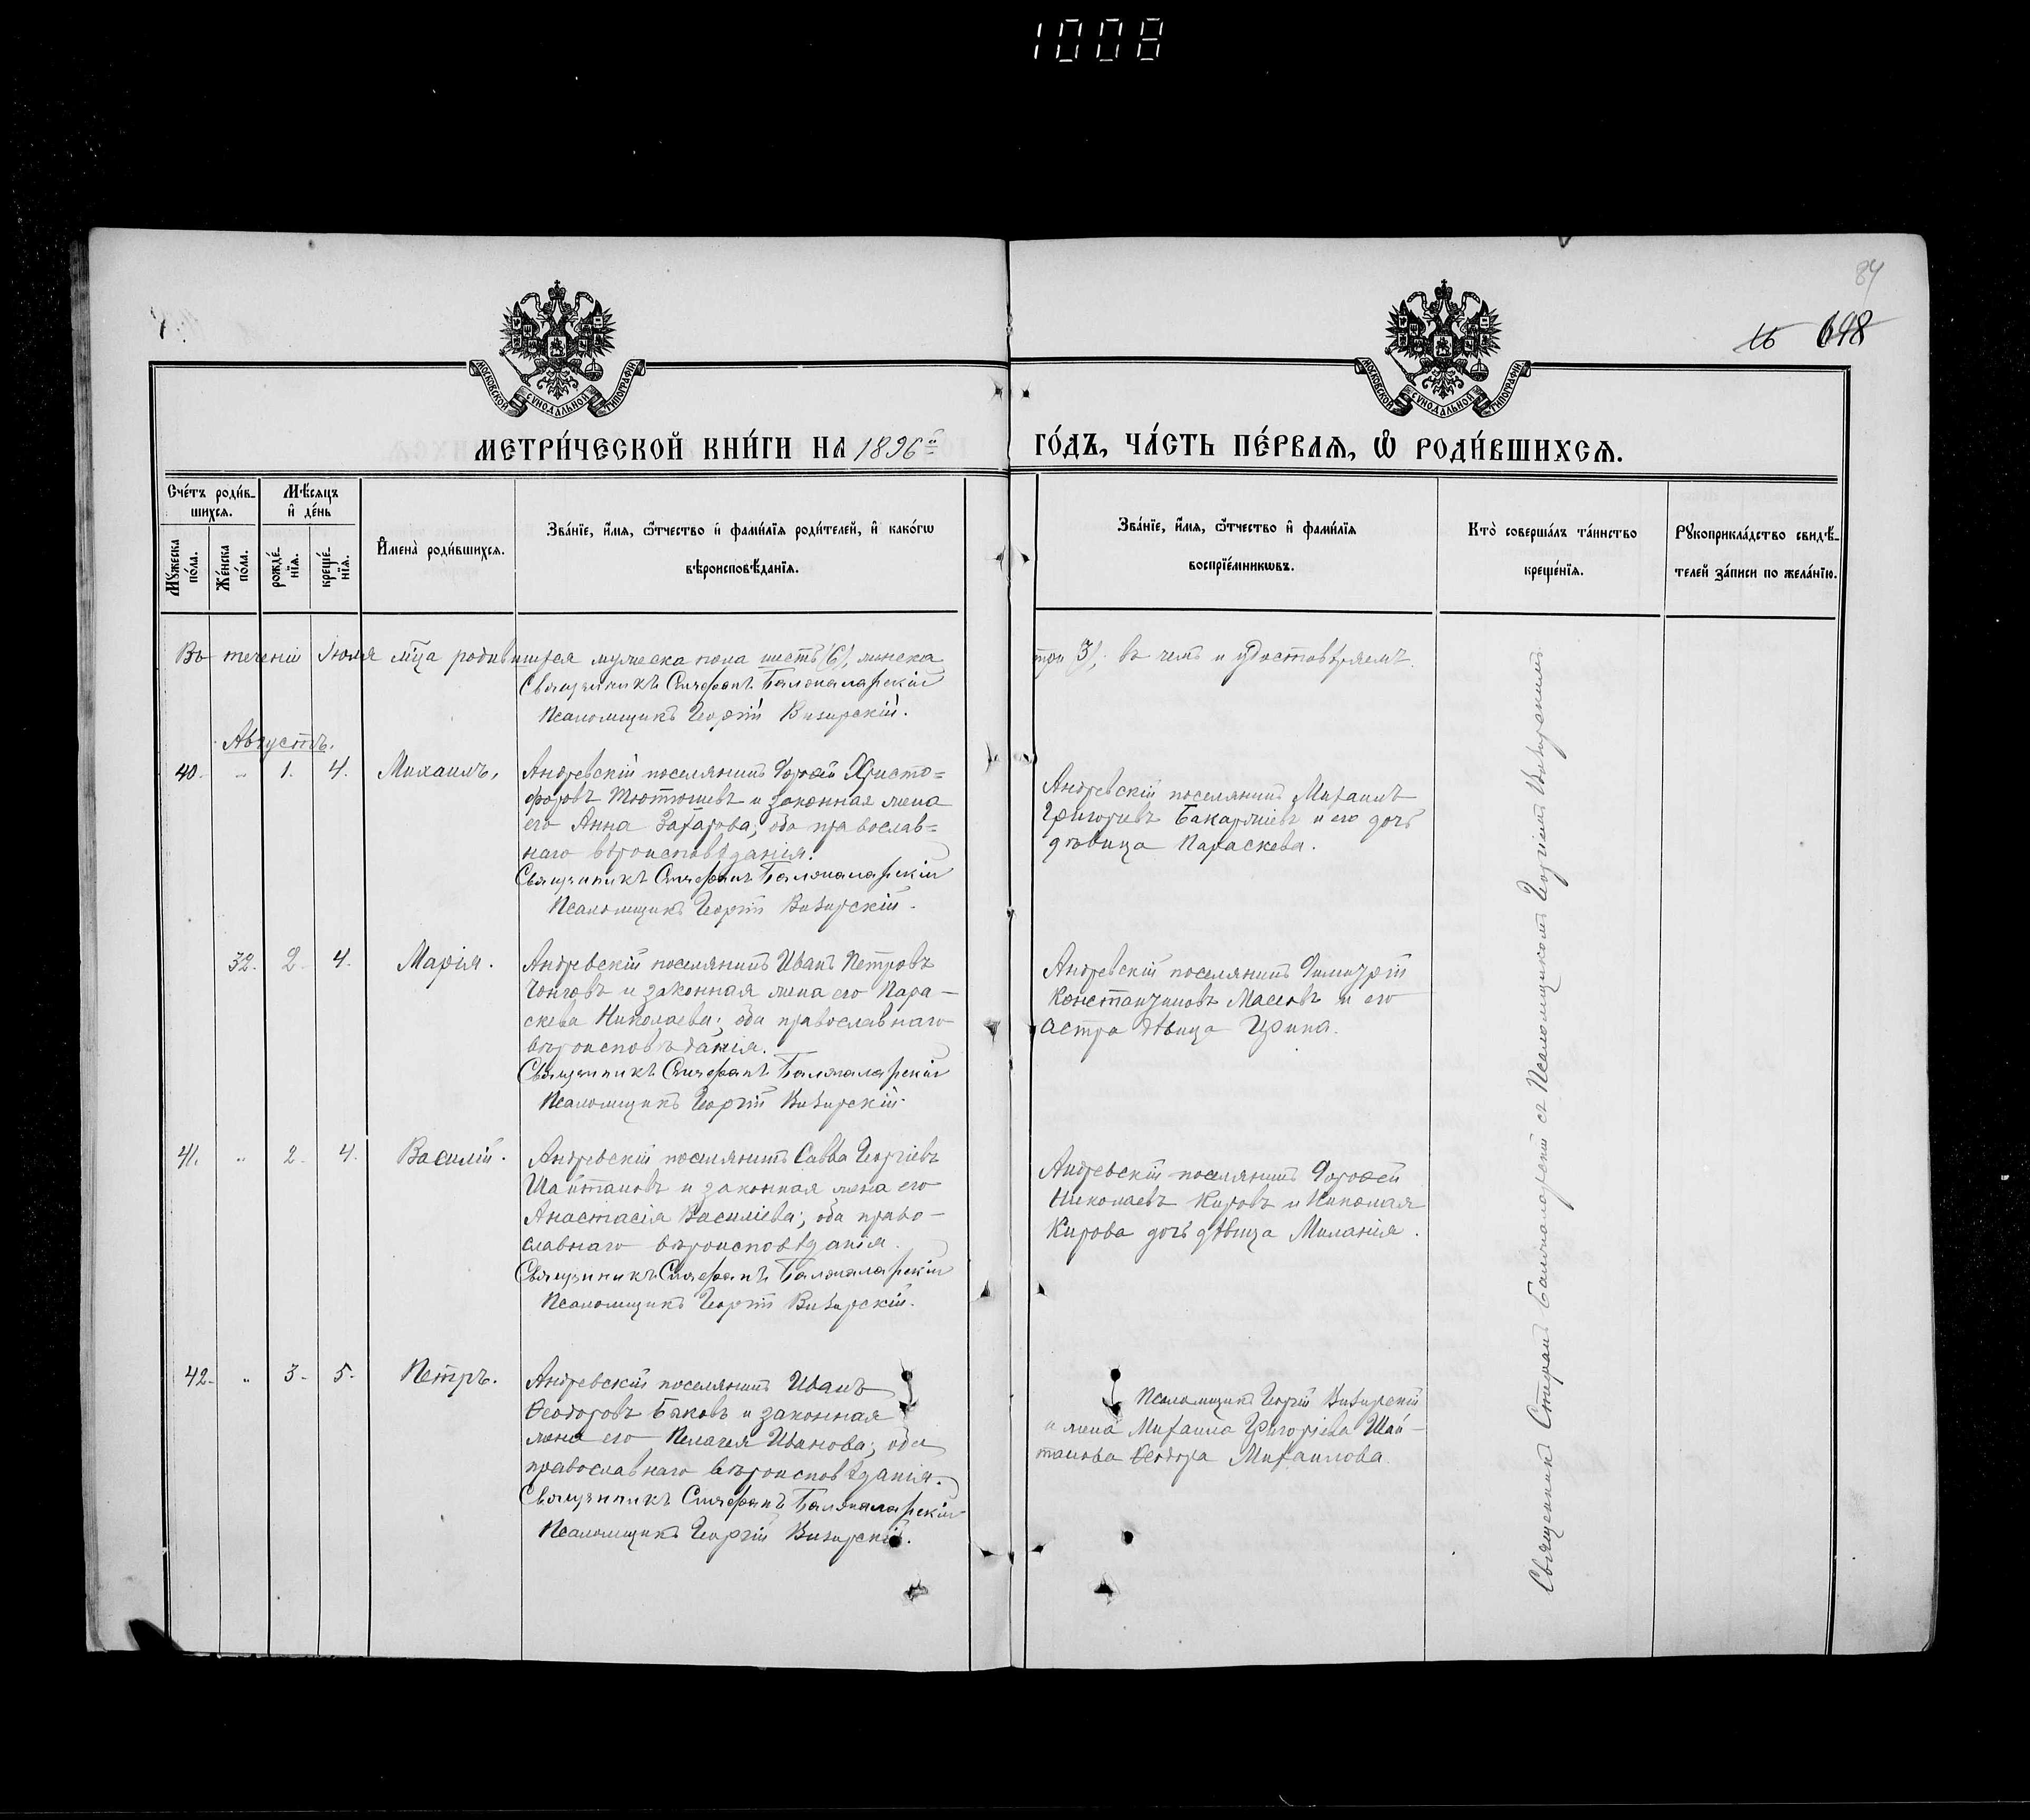 1008
84
16 698
МОСКОВСКОЙ СѴНОДАЛЬНОЙ ТИПОГРАФІИ
МОСКОВСКОЙ СѴНОДАЛЬНОЙ ТИПОГРАФІИ
МЕТРИ́ЧЕСКОЙ КНИ́ГИ НА 1896й
ГО́ДЪ, ЧА́СТЬ ПЕ́РВАѦ, Ѽ РОДИ́ВШИХСѦ.
Сче́тъ роди́в-
шихсѧ.
Мѣ́сѧцъ
и҆ де́нь
Мꙋ́жеска по́ла.
Же́нска по́ла.
рожде́-
нїѧ.
креще́-
нїѧ.
И҆мена̀ роди́вшихсѧ.
Зва́нїе, и҆́мѧ, ѻ҆́тчество и҆ фами́лїѧ роди́телей, и҆ како́гѡ
вѣроисповѣ́данїѧ.
Зва́нїе, и҆́мѧ, ѻ҆́тчество и҆ фами́лїѧ
воспрїе́мникѡвъ.
Кто̀ соверша́лъ та́инство
креще́нїѧ.
Рꙋкоприкла́дство свидѣ́-
телей за́писи по жела́нїю.
Въ теченіи Іюля мѣца родившихся мужеска пола шесть (6), женска
три (3), въ чемъ и удостовѣряемъ.
Священникъ Стефанъ Балталарскій
Псаломщикъ Георгій Визирскій.
Августъ.
40. " 1. 4. Михаилъ,
Андреевскій поселянинъ Дорофей Христо=
форовъ Тютюшевъ и законная жена
его Анна Захарова; оба православ=
наго вѣроисповѣданія.
Священникъ Стефанъ Балталарскій
Псаломщикъ Георгій Визирскій.
Андреевскій поселянинъ Михаилъ
Григорьевъ Бакаржіевъ и его дочь
дѣвица Параскева.
32. 2. 4. Марія.
Андреевскій поселянинъ Иванъ Петровъ
Чонговъ и законная жена его Пара-
скева Николаева; оба православнаго
вѣроисповѣданія.
Священникъ Стефанъ Балталарскій
Псаломщикъ Георгій Визирскій.
Андреевскій поселянинъ Димитрій
Константиновъ Масловъ и его
сестра дѣвица Ирина.
41. " 2. 4. Василій.
Андреевскій поселянинъ Савва Георгіевъ
Шайтановъ и законная жена его
Анастасія Василіева; оба право-
славнаго вѣроисповѣданія.
Священникъ Стефанъ Балталарскій
Псаломщикъ Георгій Визирскій.
Андреевскій поселянинъ Дорофей
Николаевъ Кировъ и Николая
Кирова дочь дѣвица Миланія.
42. " 3. 5. Петръ.
Андреевскій поселянинъ Иванъ
Ѳеодоровъ Быковъ и законная
жена его Пелагея Иванова; оба
православнаго вѣроисповѣданія.
Священникъ Стефанъ Балталарскій
Псаломщикъ Георгій Визирскій.
Псаломщикъ Георгій Визирскій
и жена Михаила Григорьева Шай-
танова Ѳеодора Михаилова.
Священникъ Стефанъ Балталарскій съ Псаломщикомъ Георгіемъ Визирскимъ